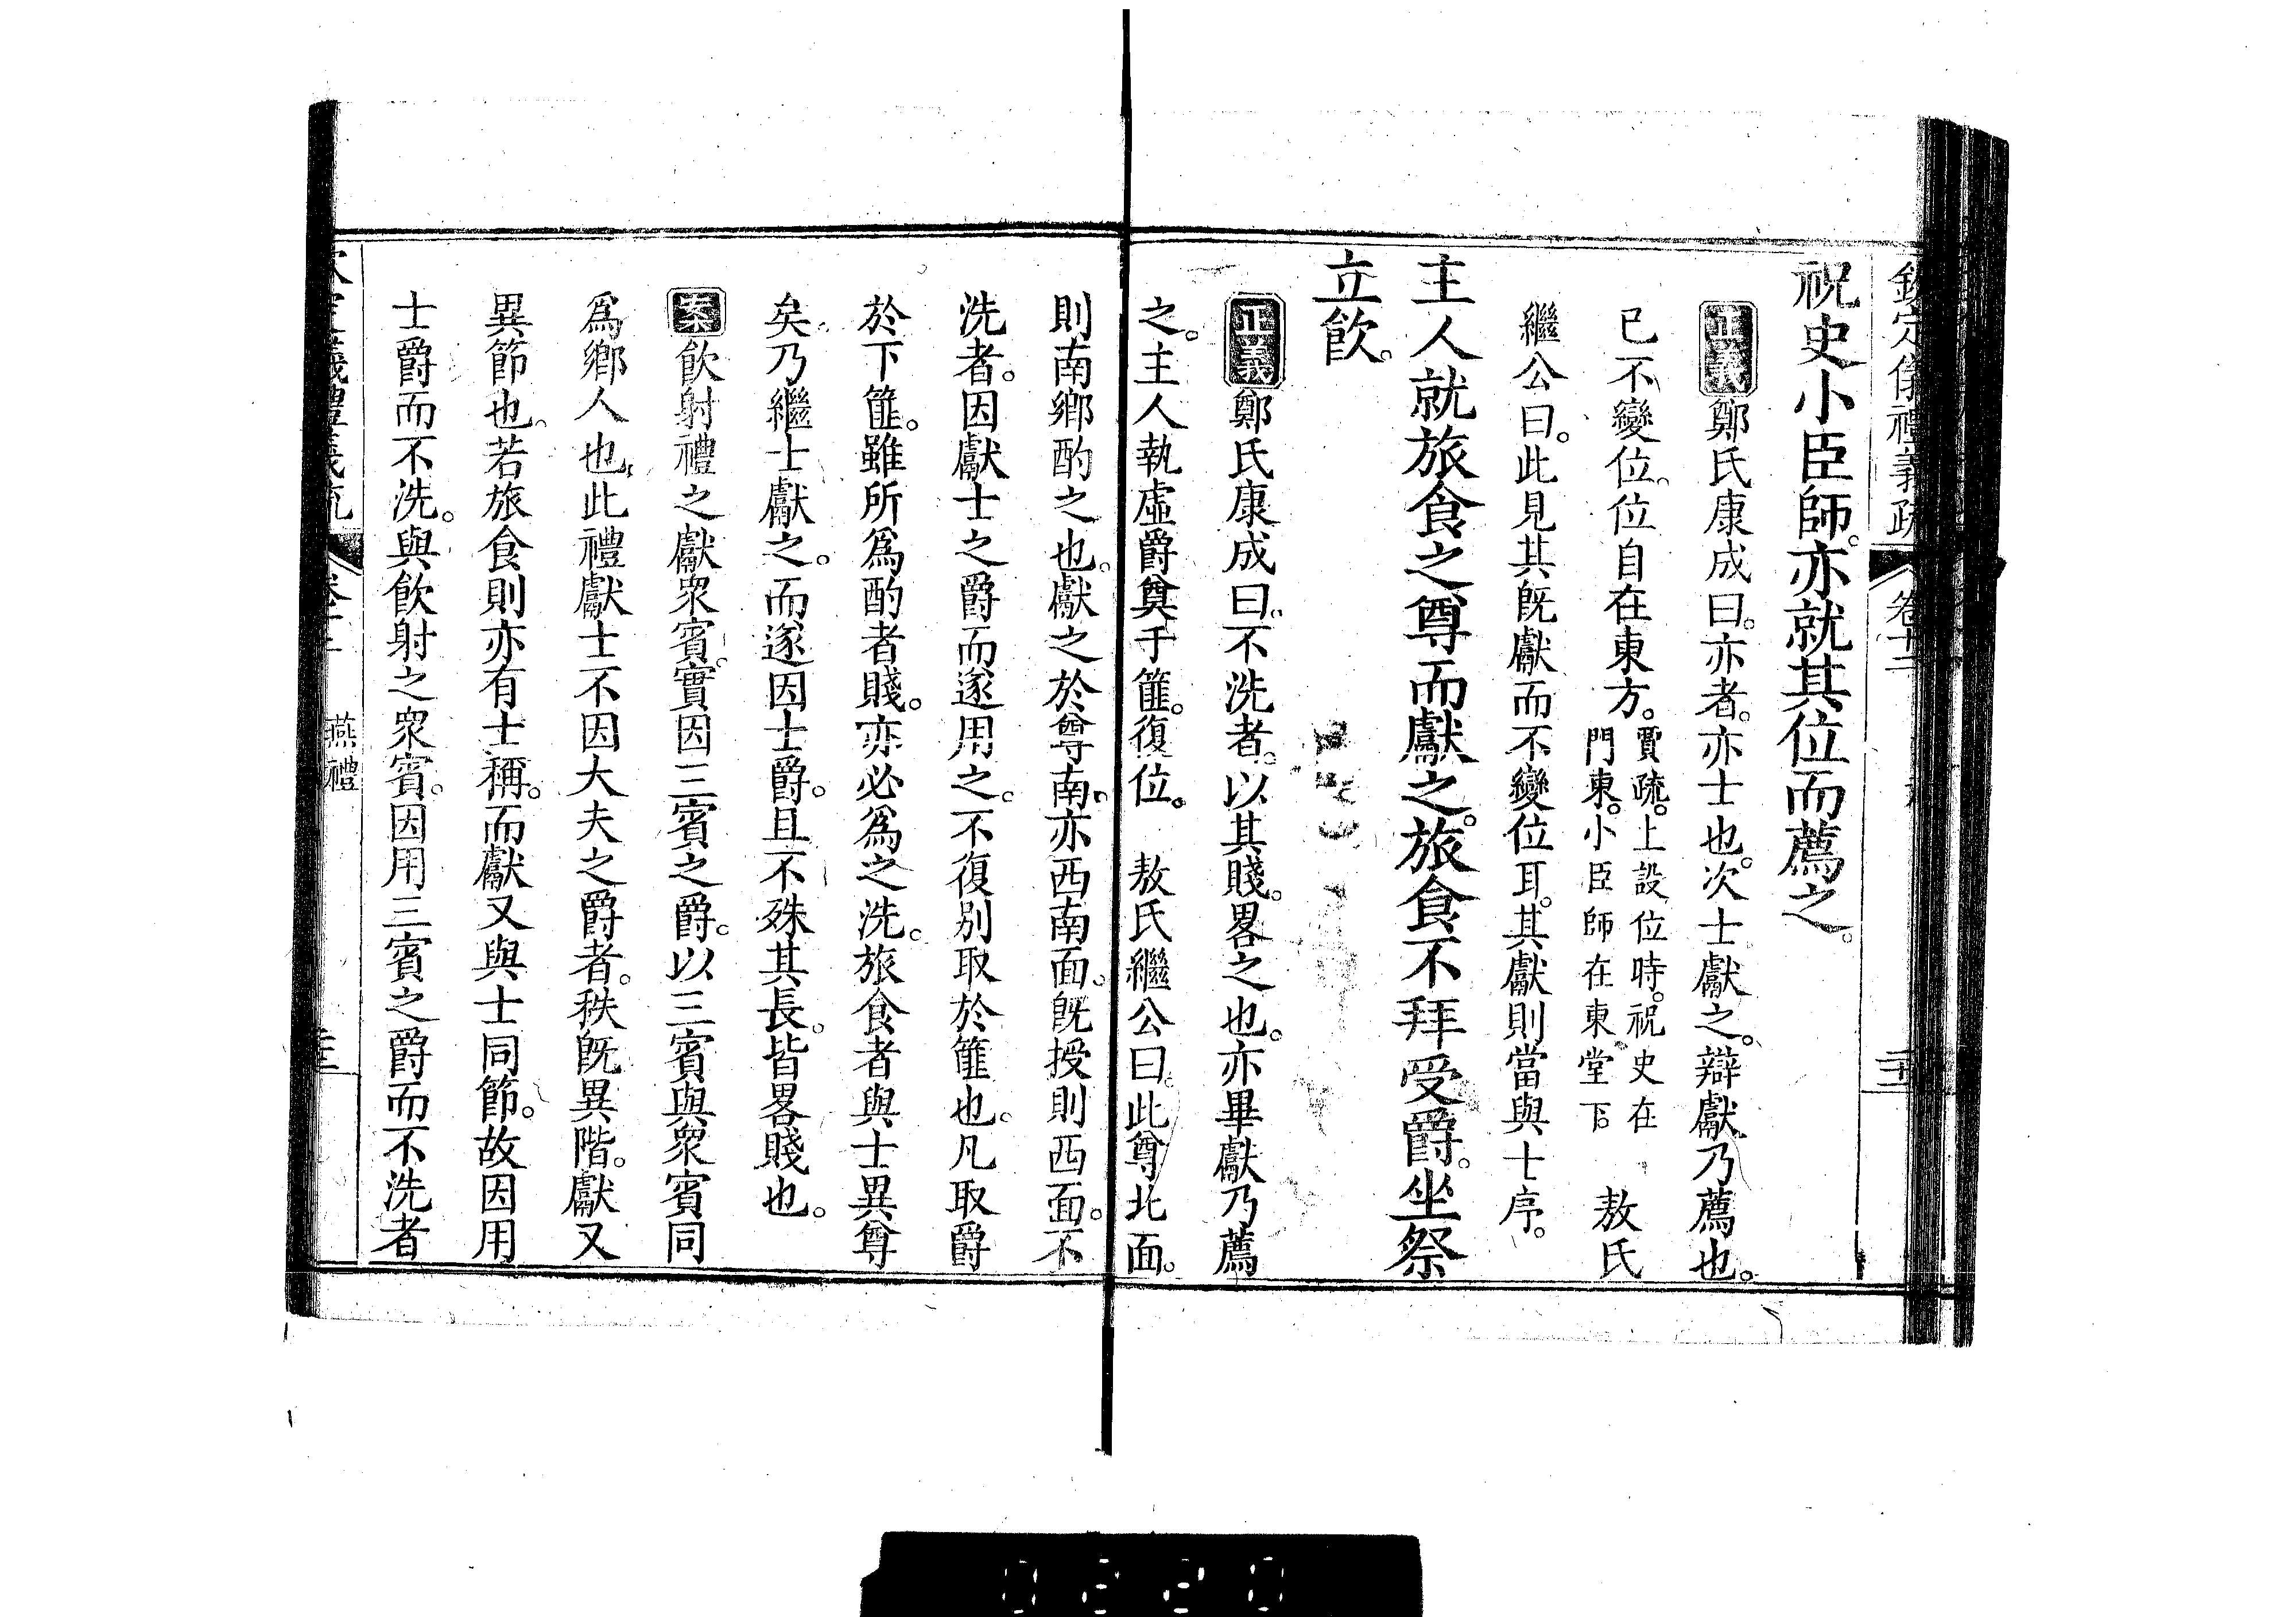 欽定儀禮義疏 卷十二
祝史小臣師。亦就其位而薦之。
正義鄭氏康成曰。亦者。亦士也。次士獻之。辯獻乃薦也。
已不變位。位自在東方。賈疏。上設位時。祝史在門東。小臣師在東堂下。 敖氏
繼公曰。此見其旣獻而不變位耳。其獻則當與士序。
主人就旅食之尊而獻之。旅食不拜受爵。坐祭
立飮。
正義鄭氏康成曰。不洗者。以其賤。畧之也。亦畢獻乃薦
之。主人執虛爵奠于篚。復位。 敖氏繼公曰。此尊北面。
則南鄉酌之也。獻之於尊南。亦西南面。旣授則西面。不
洗者。因獻士之爵而遂用之。不復別取於篚也。凡取爵
於下篚。雖所爲酌者賤。亦必爲之洗。旅食者與士異尊
矣。乃繼士獻之。而遂因士爵。且不殊其長。皆畧賤也。
案飮射禮之獻衆賓。實因三賓之爵。以三賓與衆賓同
爲鄉人也。此禮獻士不因大夫之爵者。秩旣異階。獻又
異節也。若旅食則亦有士稱。而獻又與士同節。故因用
士爵而不洗。與飮射之衆賓。因用三賓之爵而不洗者
燕禮
0220